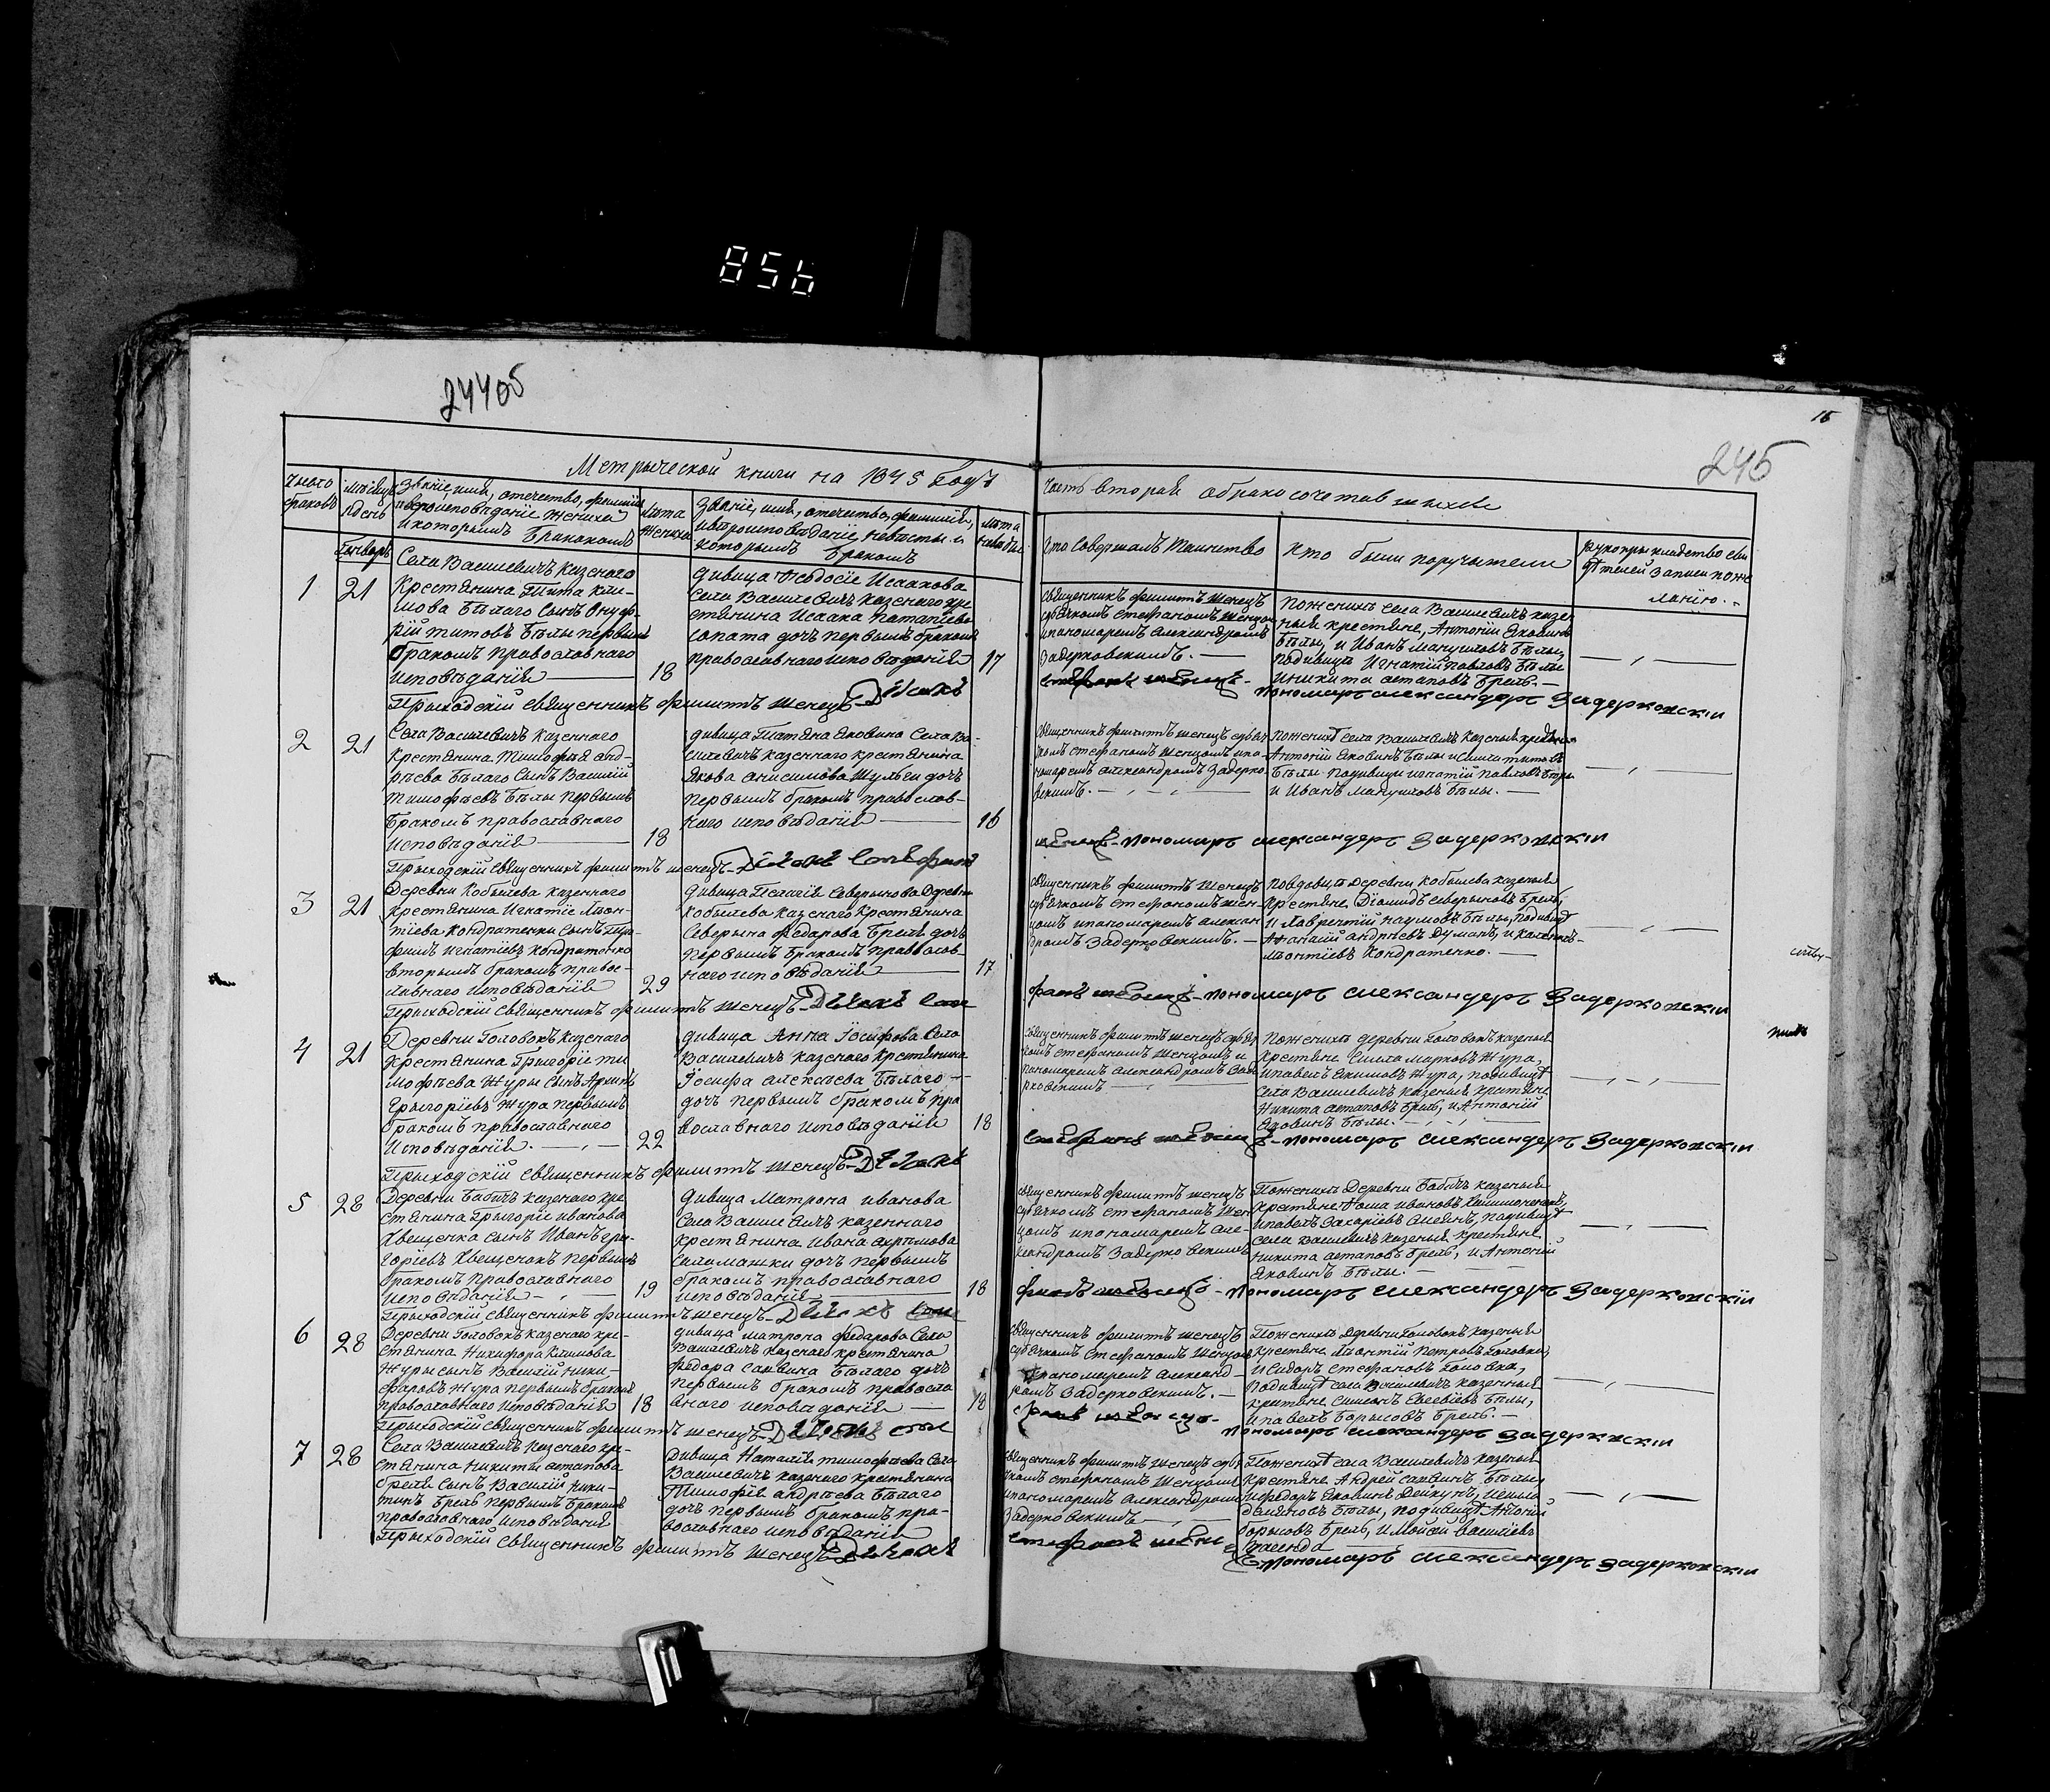 856
24405
15
245
Метрической книги на 1845 Годъ
Часть вторая о бракосочетавшихся
Число браковъ
Мѣсяцъ и день
Званіе, имя, отечество, фамилія
и вероисповѣданіе жениха
и которымъ бракомъ
Лѣта жениха
Званіе, имя, отечество, фамилія,
и вѣроисповѣданіе невѣсты и
которымъ бракомъ
Лѣта невѣсты
Кто совершалъ таинство
Кто были поручители
Январь
1
21
Села Василевичъ казенаго
Крестянина Тита
Бѣлаго сынъ Онуф-
рій титовъ Бѣлы первымъ
бракомъ православнаго
исповѣданія
18
дивица Ѳеодосіе Исаакова
села Василевичъ казенаго кре
стянина Исаака
дочъ первымъ бракомъ
православнаго исповѣданія
17
священникъ филипъ Шенецъ
сдьячкомъ стефаномъ Шенцомъ
ипаномаремъ александромъ
Задерковскимъ.
Поженихъ села Василевичъ казен
ные крестяне, Антоній Яковинъ
Бѣлы, и Иванъ мануиловъ Бѣлы,
подивицъ Игнатій павловъ Бѣлы
иникита астаповъ Брель.
Прыходскій священникъ филипъ шенецъ Дьякъ
стефанъ шенецъ - пономаръ александеръ Задерковскіи
2
21
Села Василевичъ казенного
крестянина Тимофѣя анд-
рѣева Бѣлаго сынъ Василій
тимофѣевъ Бѣлы первымъ
Бракомъ православнаго
исповѣданія
18
дивица Татяна Яковина Села Ва-
силевичъ казенного крестянина
Якова анисимова Шульги дочъ
первымъ бракомъ православ-
наго исповѣданія
16
священникъ филипъ шенецъ сдьяч
комъ стефаномъ шенцомъ ипа-
номаремъ александромъ Задерко
вскимъ.
Поженихъ села Василевичъ казеные крестяне
Антоній Яковинъ Бѣлы
Бѣлы подивицы игнатій павловъ Бѣлы
и Иванъ мануиловъ Бѣлы.
Прыходскій священникъ филипъ шенецъ - Дьякъ Стефанъ
шенецъ - пономаръ александеръ Задерковскіи
3
21
Деревни Кобылева казенного
крестянина Игнатіе Леон-
тіева Кондратенки сынъ
игнатіевъ Кондратенко
вторымъ бракомъ правос-
лавнаго исповѣданія
29
дивица Пелагія Северынова деревни
Кобылева казенаго крестянина
Северына федарова Брель дочъ
первымъ бракомъ православ-
наго исповѣданія
17
священникъ филипъ шенецъ
сдьячкомъ стефаномъ шен-
цомъ ипаномаремъ алексан
дромъ Задерковскимъ.
повдовцѣ деревни Кобылева казеные
крестяне Діомидъ северыновъ Брель,
и Лаврентій наумовъ Бѣлы, подивицѣ
Афанасій андрѣевъ Думанъ, и
леонтіевъ Кондратенко.
Прыходскій священникъ филипъ шенецъ - Дьякъ Сте
фанъ шенецъ - пономаръ александеръ Задерковскіи
4
21
Деревни Головокъ казенаго
крестянина Грыгоріе ти
мофѣева Журы сынъ
Грыгоріевъ Жура первымъ
бракомъ православнаго
исповѣданія.
22
дивица Анна Іосифова села
Василевичъ казенаго крестянина
Іосифа алексѣева Бѣлаго
дочъ первымъ бракомъ пра
вославнаго исповѣданія
18
священникъ филипъ шенецъ сдьяч
комъ стефаномъ Шенцомъ и
паномаремъ александромъ Заде
рковскимъ
Поженихъ деревни Головокъ казеные
крестяне марковъ Жура,
ипавелъ Якимовъ Жура, подивицѣ
села Василевичъ казеные крестяне
никита астаповъ Брель, и Антоній
Яковинъ Бѣлы.
Прыходскій священникъ филипъ шенецъ - Дьякъ
стефанъ шенецъ - пономаръ александеръ Задерковскіи
5
28
Деревни Бабичъ казенаго кре
стянина Грыгоріе иванова
Хвещенка сынъ Иванъ гры-
горіевъ Хвещенокъ первымъ
бракомъ православнаго
исповѣданія
19
дивица Матрона иванова
села Василевичъ казенного
крестянина Ивана
Саламашки дочъ первымъ
бракомъ православнаго
исповѣданія
18
священникъ филипъ шенецъ
сдьячкомъ стефаномъ Шен
цомъ ипономаремъ але
ксандромъ Задерковскимъ
Поженихъ Деревни Бабичъ казеные
крестяне ивановъ
ипавелъ Захаріевъ подивицѣ
села Василевичъ казеные крестяне
никита астаповъ Брель, и Антоній
Яковинъ Бѣлы.
Прыходскій священникъ филипъ шенецъ - Дьякъ Сте
фанъ шенецъ - пономаръ александеръ Задерковскіи
6
28
Деревни Головокъ казенаго кре-
стянина Никифора Климова
Журы сынъ Василій ники-
фаровъ Жура первымъ бракомъ
православнаго исповѣданія
18
дивица матрона федарова села
Василевичъ казенаго крестянина
федора савина Бѣлаго дочъ
первымъ бракомъ правосла
внаго исповѣданія
18
священникъ филипъ шенецъ
сдьячкомъ стефаномъ Шенцомъ
ипаномаремъ александ-
ромъ Задерковскимъ.
Поженихъ деревни Головокъ казеные
крестяне Леонтій Петровъ Головка,
и Сидоръ стефановъ Головка,
подивицѣ села Василевичъ казенные
крестяне Симеонъ Бѣлы,
ипавелъ Борысовъ Брель.
Прыходскій священникъ филипъ шенецъ - Дьякъ сте
фанъ шенецъ
пономаръ александеръ Задерковскіи
7
28
Села Василевичъ казенаго кре-
стянина никиты астапова
Брели сынъ Василій ники-
тинъ Брель первымъ бракомъ
православнаго исповѣданія
дивица Наталія тимофѣева села
Василевичъ казенаго крестянина
Тимофѣе андрѣева Бѣлаго
дочъ первымъ бракомъ пра-
вославнаго исповѣданія
священникъ филипъ шенецъ сдья
чкомъ стефаномъ Шенцомъ
ипаномаремъ александромъ
Задерковскимъ
Поженихѣ села Василевичъ казеные
крестяне Андрей савинъ Бѣлы
ифедоръ Яковинъ
Бѣлы, подивицѣ Антоній
борысовъ Брель, и Мойсей василіевъ
Прыходскій священникъ филипъ шенецъ Дьякъ
стефанъ шенецъ
пономаръ александеръ Задерковскіи